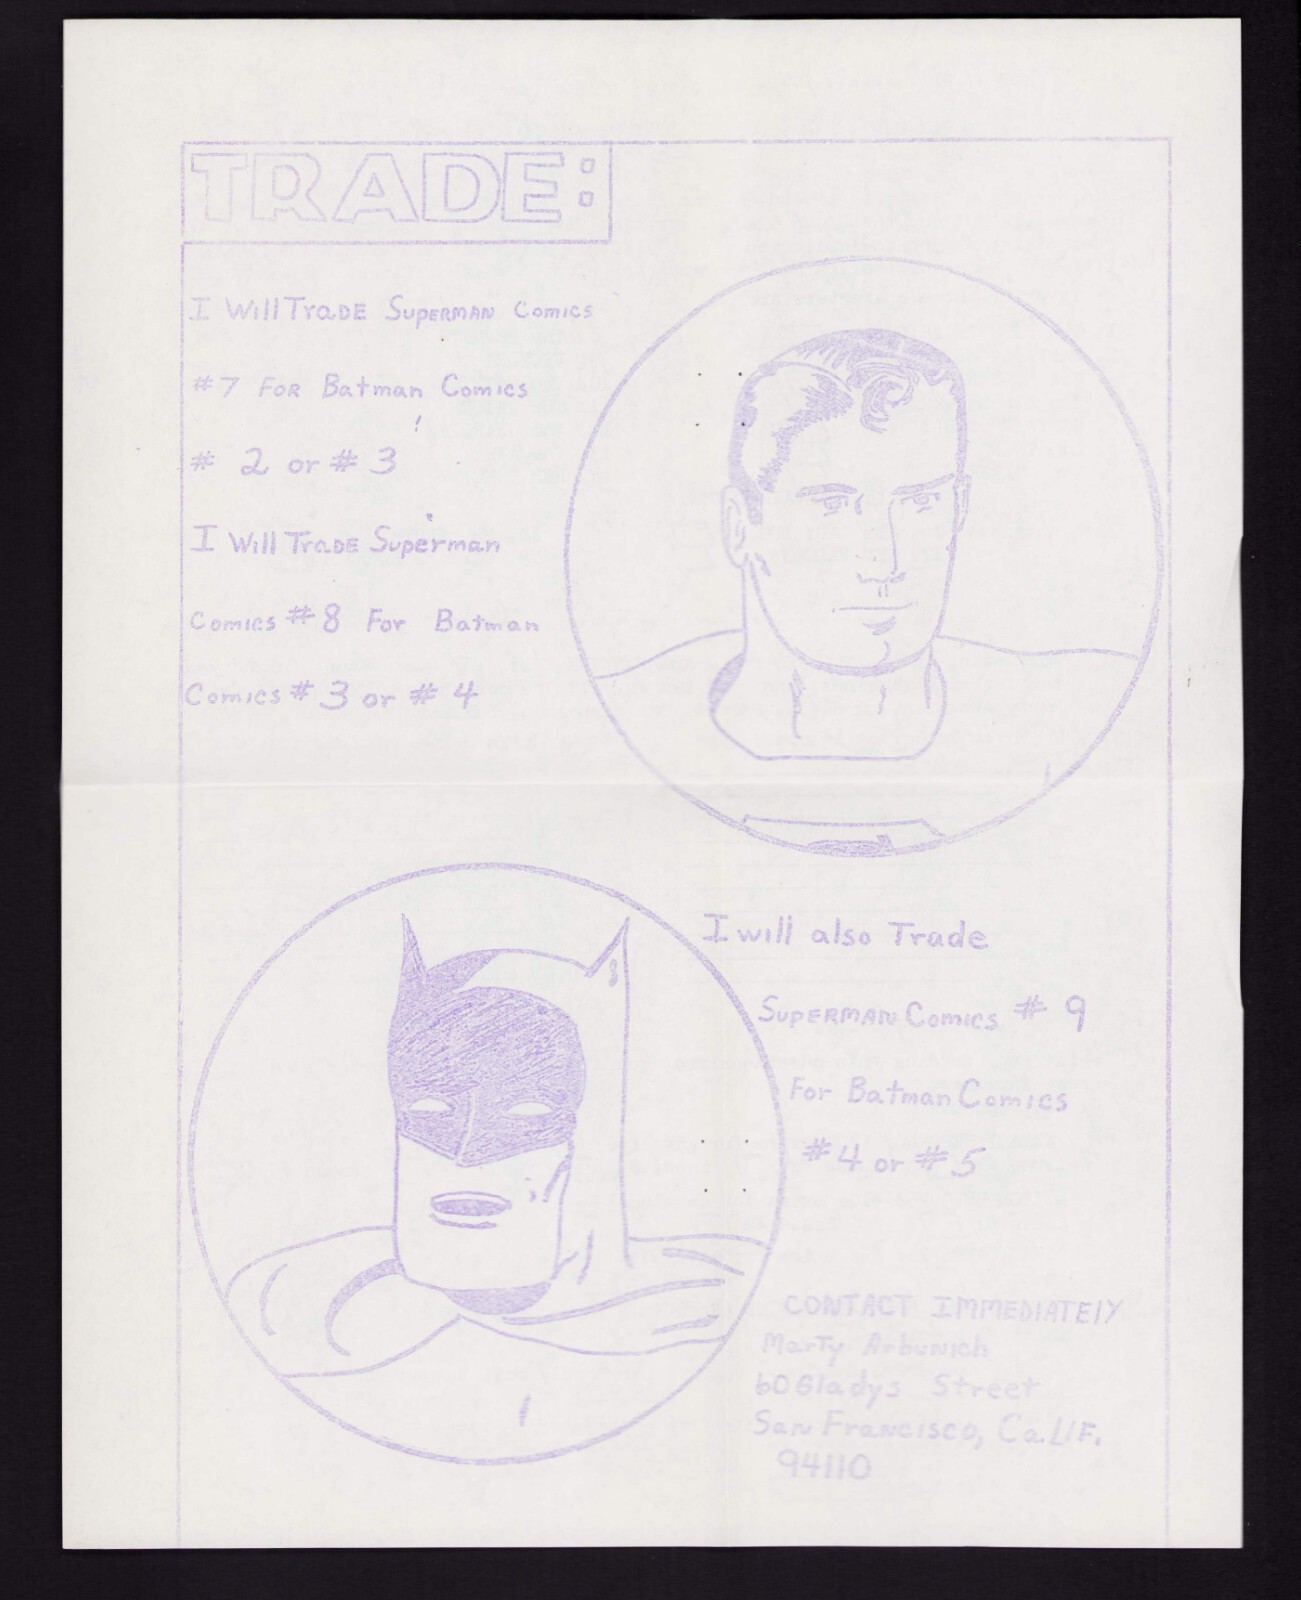 TRADE:
I Will Trade Superman Comics
#7 For Batman Comics
# 2 or # 3
I Will Trade Superman
Comics #8 For Batman
Comics # 3 or # 4
I will also Trade
Superman Comics # 9
For Batman Comics
#4 or #5
CONTACT IMMEDIATELY
Marty Arbunich
60 Gladys Street
San Francisco, Calif.
94110